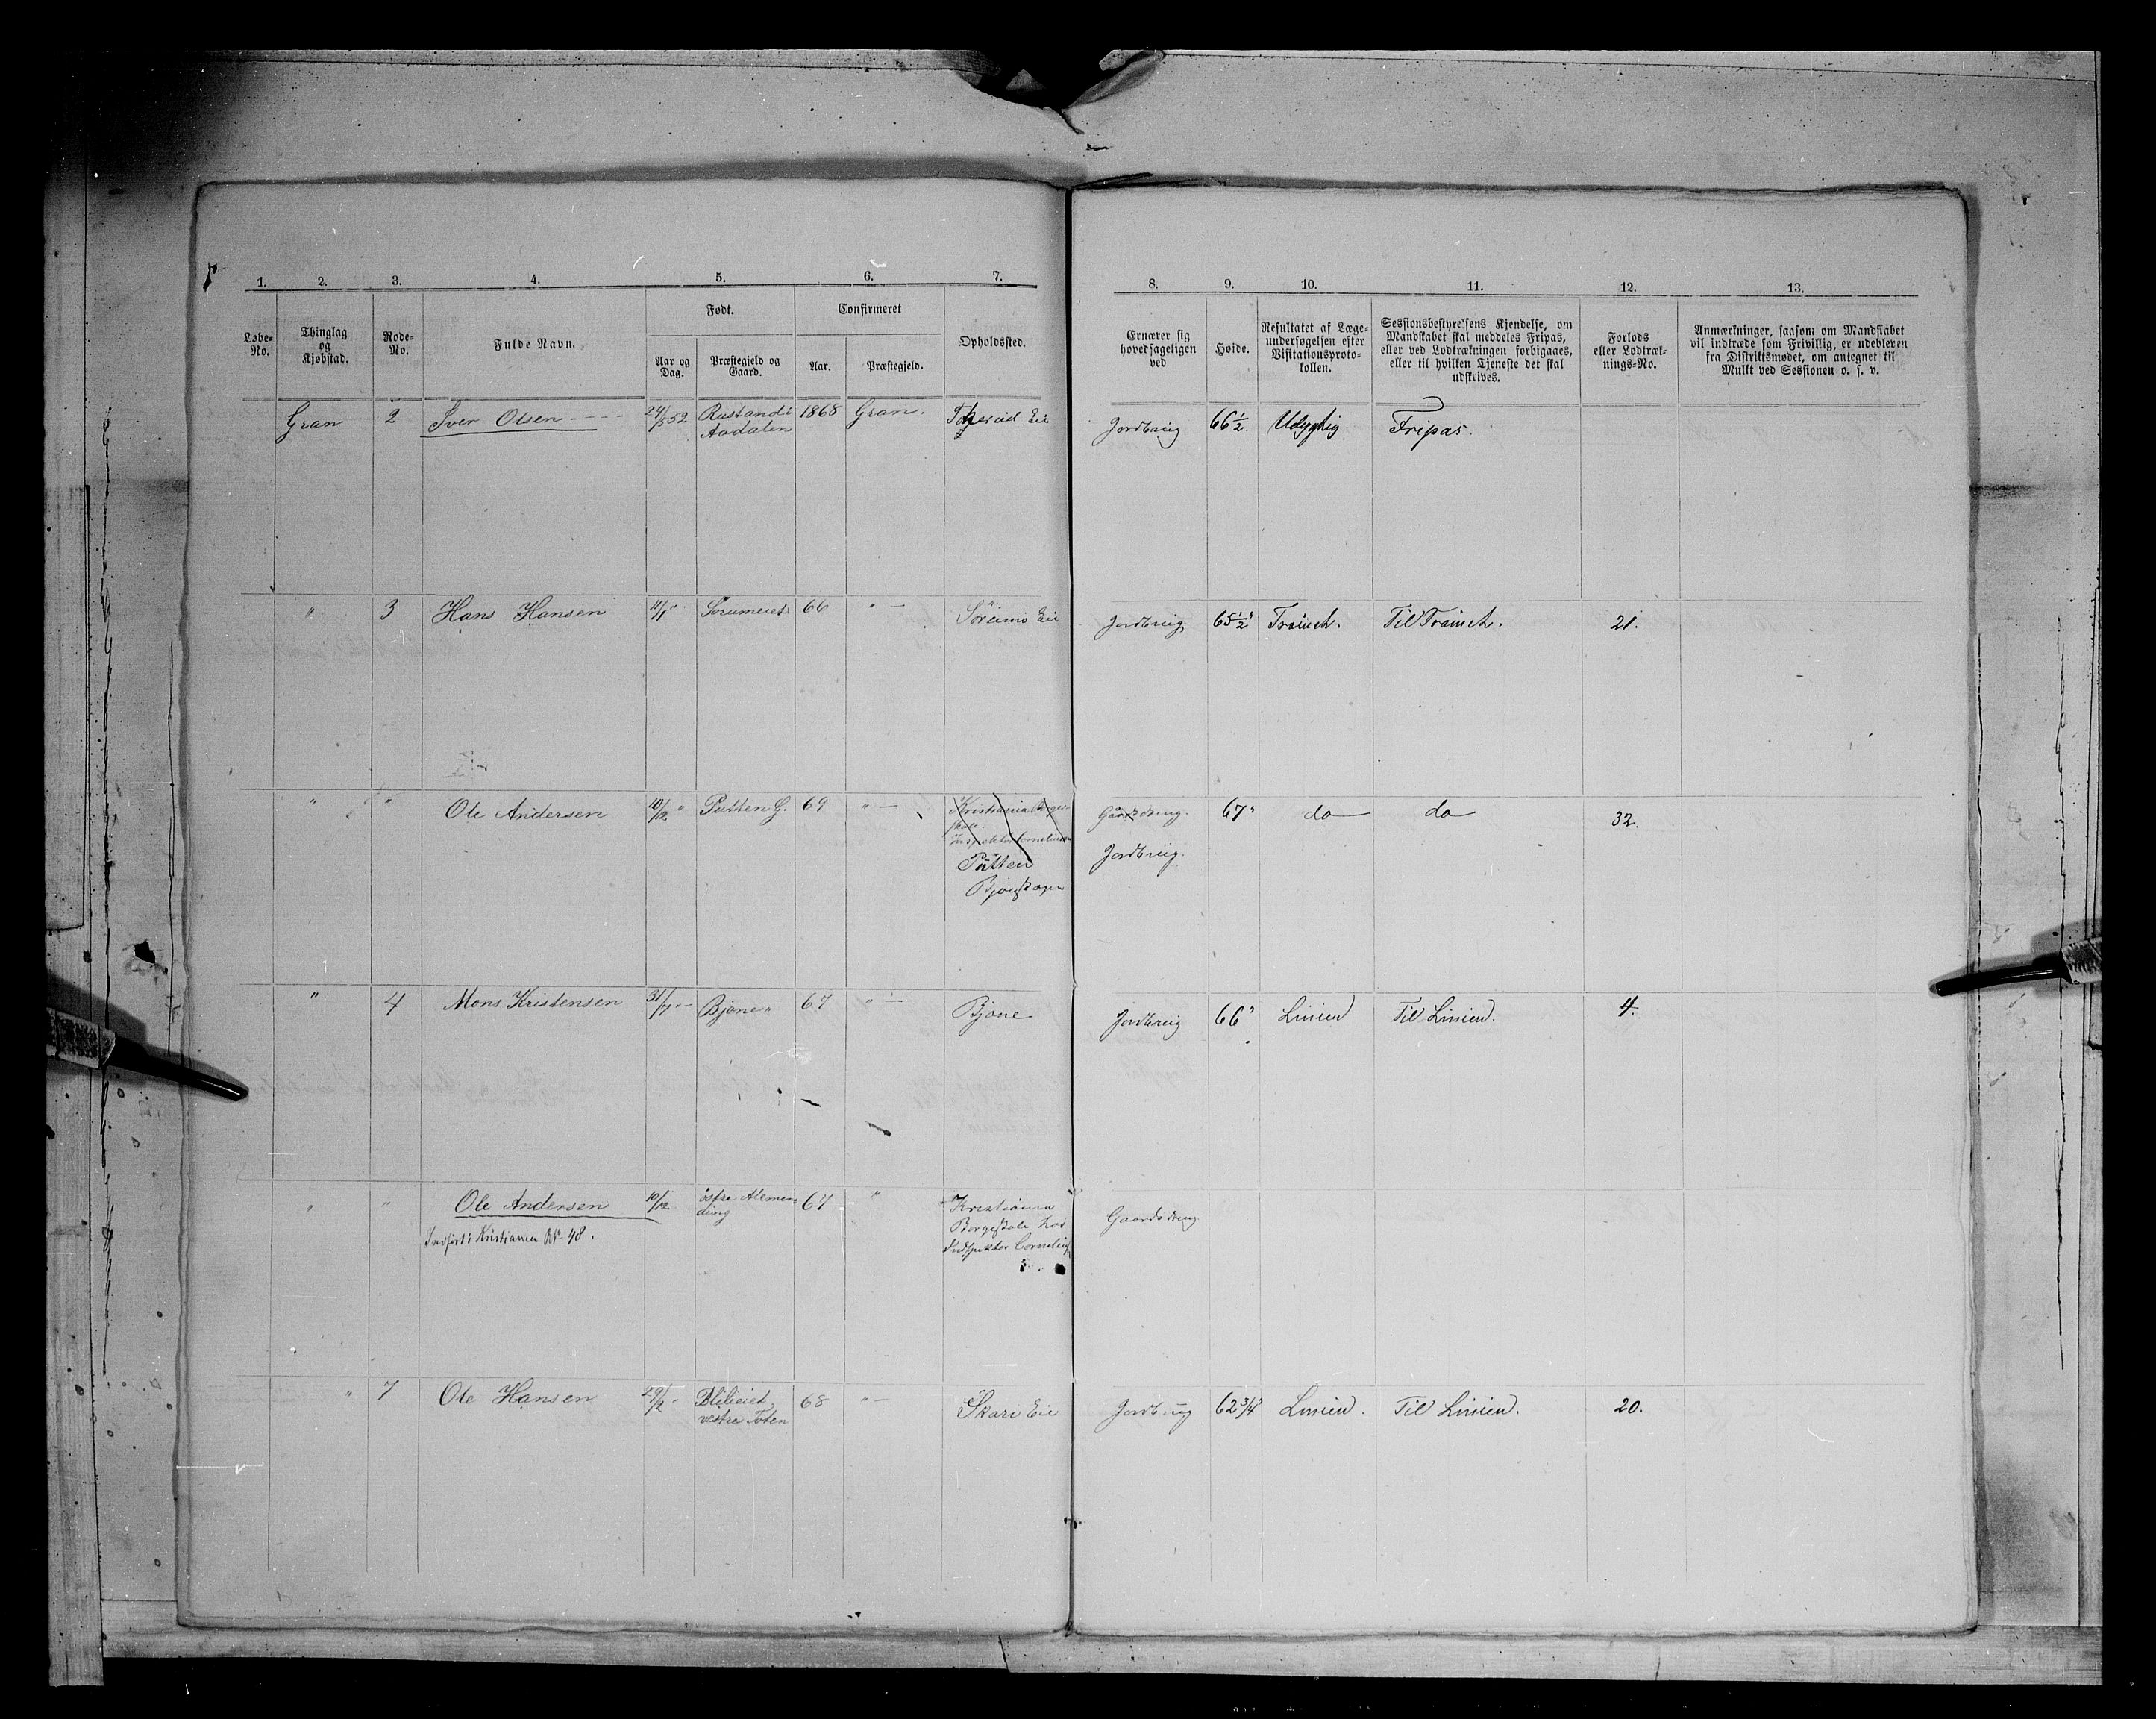 1. 2. 3. 4. 5. 6. 7. 8. 9. 10. 11. 12. 13.
Løbe-No.
Thinglag og Kjøbstad.
Rode-No.
Fulde Navn.
Født.
Aar og Dag.
Præstegjeld og Gaard.
Confirmeret
Aar.
Præstegjeld.
Opholdssted.
Ernærer sig hovedsageligen ved
Høide.
Resultatet af Læge-
undersøgelsen efter
Visitationsproto-
kollen.
Sessionsbestyrelsens Kjendelse, om
Mandskabet skal meddeles Fripas,
eller ved Lodtrækningen forbigaaes,
eller til hvilken Tjeneste det skal
udskrives.
Forlods
eller Lodtræk-
nings-No.
Anmærkninger, saasom om Mandskabet
vil indtræde som Frivillig, er udebleven
fra Distriktsmødet, om antegnet til
Mulkt ved Sessionen o. s. v.
Gran 2 Iver Olsen 24/8 52 Rustand i 1868 Gran. Eie Jordbrug 66 1/2. Udygtig. Fripas.
Aadalen
" 3 Hans Hansen 11/1 " Sørumeiet 66 " — Eie Jordbrug 65 1/2" Trainet. Til Trainet. 21.
" " Ole Andersen 10/12 " Putten G. 69 " — Kristiania Gaardsdreng. 67" do do 32.
Putten Jordbrug.
Bjoneskogen
" 4 Mons Kristensen 31/7 " Bjone " 67 " — Bjone Jordbrug 66" Linien Til Linien. 4.
" " Ole Andersen 10/12 østre Almen- 67 " Kristiania Gaardsdreng
ding
Indført i Kristiania No 48. Borgeskole hos
Indspektør Cornelius
" 7 Ole Hansen 29/2 " Blilieiet 68 " — Skari Eie Jordbrug 62 3/4" Linien. Til Linien. 20.
vestre Toten